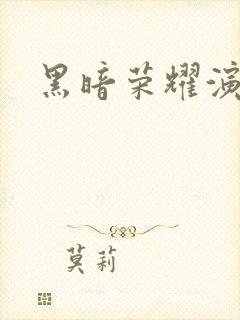 黑暗荣耀演
莫莉